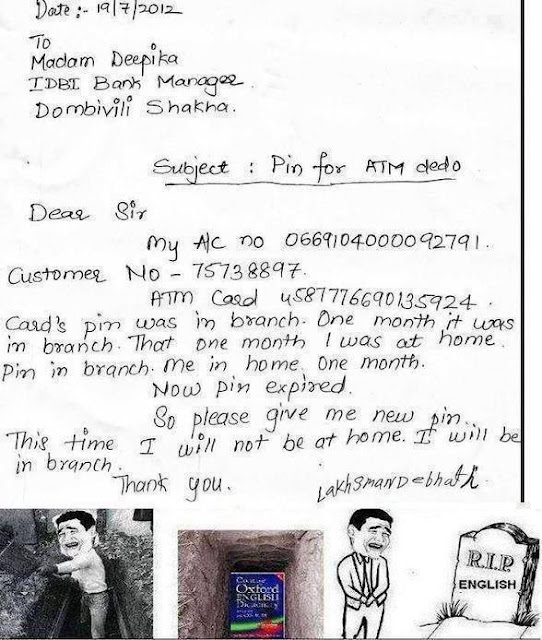 Date :- 19/7/2012
To
Madam Deepika
IDBI Bank Manager
Dombivili Shakha.
Subject : Pin for ATM dedo
Dear Sir
My A/c no 0669104000092791.
Customer No - 75738897.
ATM Card 4587776690135924.
Card's pin was in branch. One month it was
in branch. That one month I was at home.
Pin in branch. Me in home. One month.
Now pin expired.
So please give me new pin.
This time I will not be at home. I will be
in branch.
Thank you.
Lakhsman Debnath
Oxford
ENGLISH
Dictionary
R.I.P.
ENGLISH